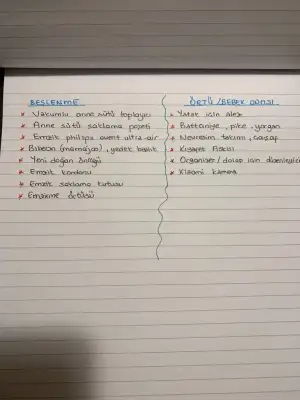 BESLENME
* Vakumlu anne sütü toplayıcı
* Anne sütü saklama poşeti
* Emzik philips avent ultra air
* Biberon (mamajoo), yedek başlık
* Yeni doğan önlüğü
* Emzik kordonu
* Emzik saklama kutusu
* Emzirme örtüsü
ÖRTÜ / BEBEK ODASI
* Yatak için alez
* Battaniye, pike, yorgan
* Nevresim takımı, çarşaf
* Kıyafet Askısı
* Organizer / dolap için düzenleyici
* Klasmi kamera